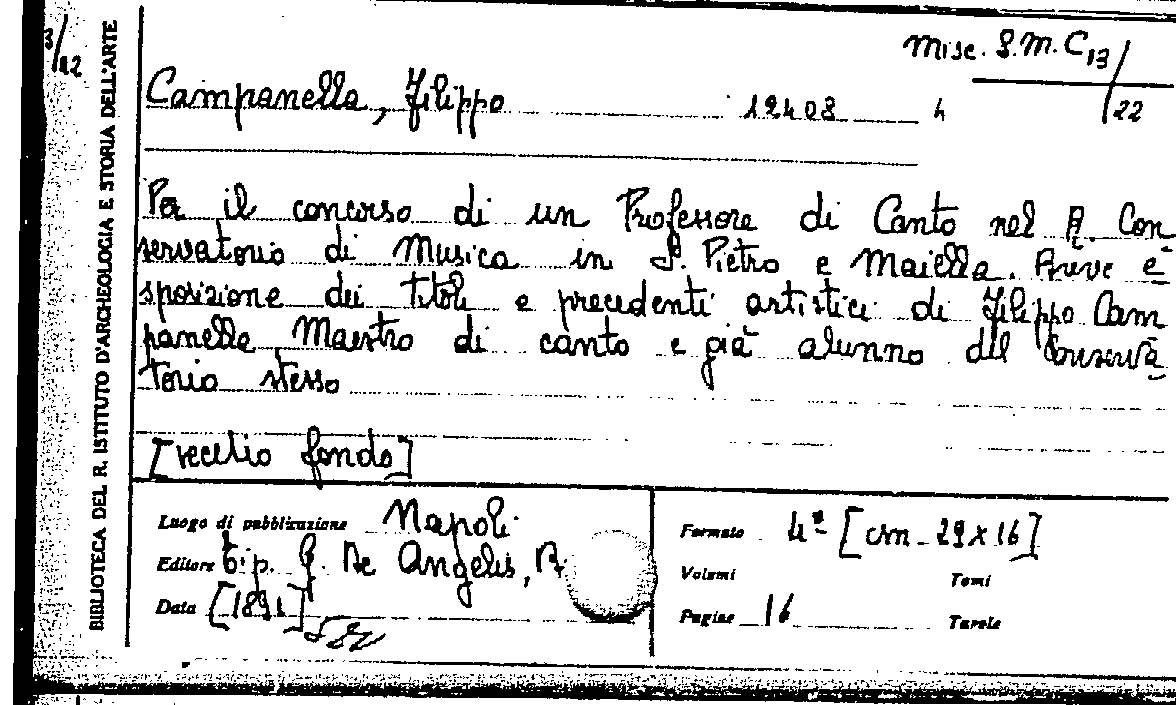 3/12
BIBLIOTECA DEL R. ISTITUTO D'ARCHEOLOGIA E STORIA DELL'ARTE
Misc. S.M. C 13/22
Campanella, Filippo 12408 4
Per il concorso di un Professore di Canto nel R. Con
servatorio di Musica in S. Pietro e Maiella. Breve e
sposizione dei titoli e precedenti artistici di Filippo Cam
panella Maestro di canto e già alunno del Conserva
torio stesso
[vecchio fondo]
Luogo di pubblicazione Napoli
Editore tip. G. De Angelis,
Data [1891]
Formato 4° [cm. 29x16]
Volumi Tomi
Pagine 16 Tavole